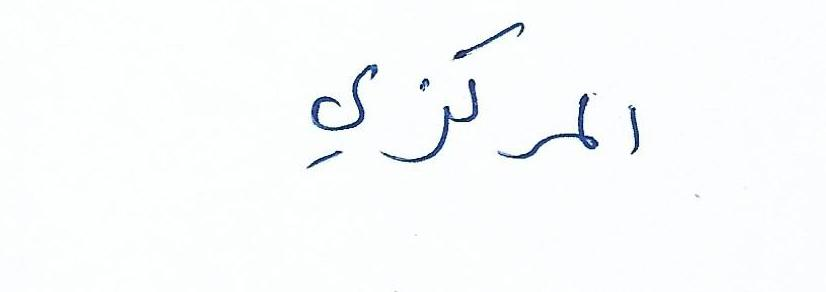 المركزي